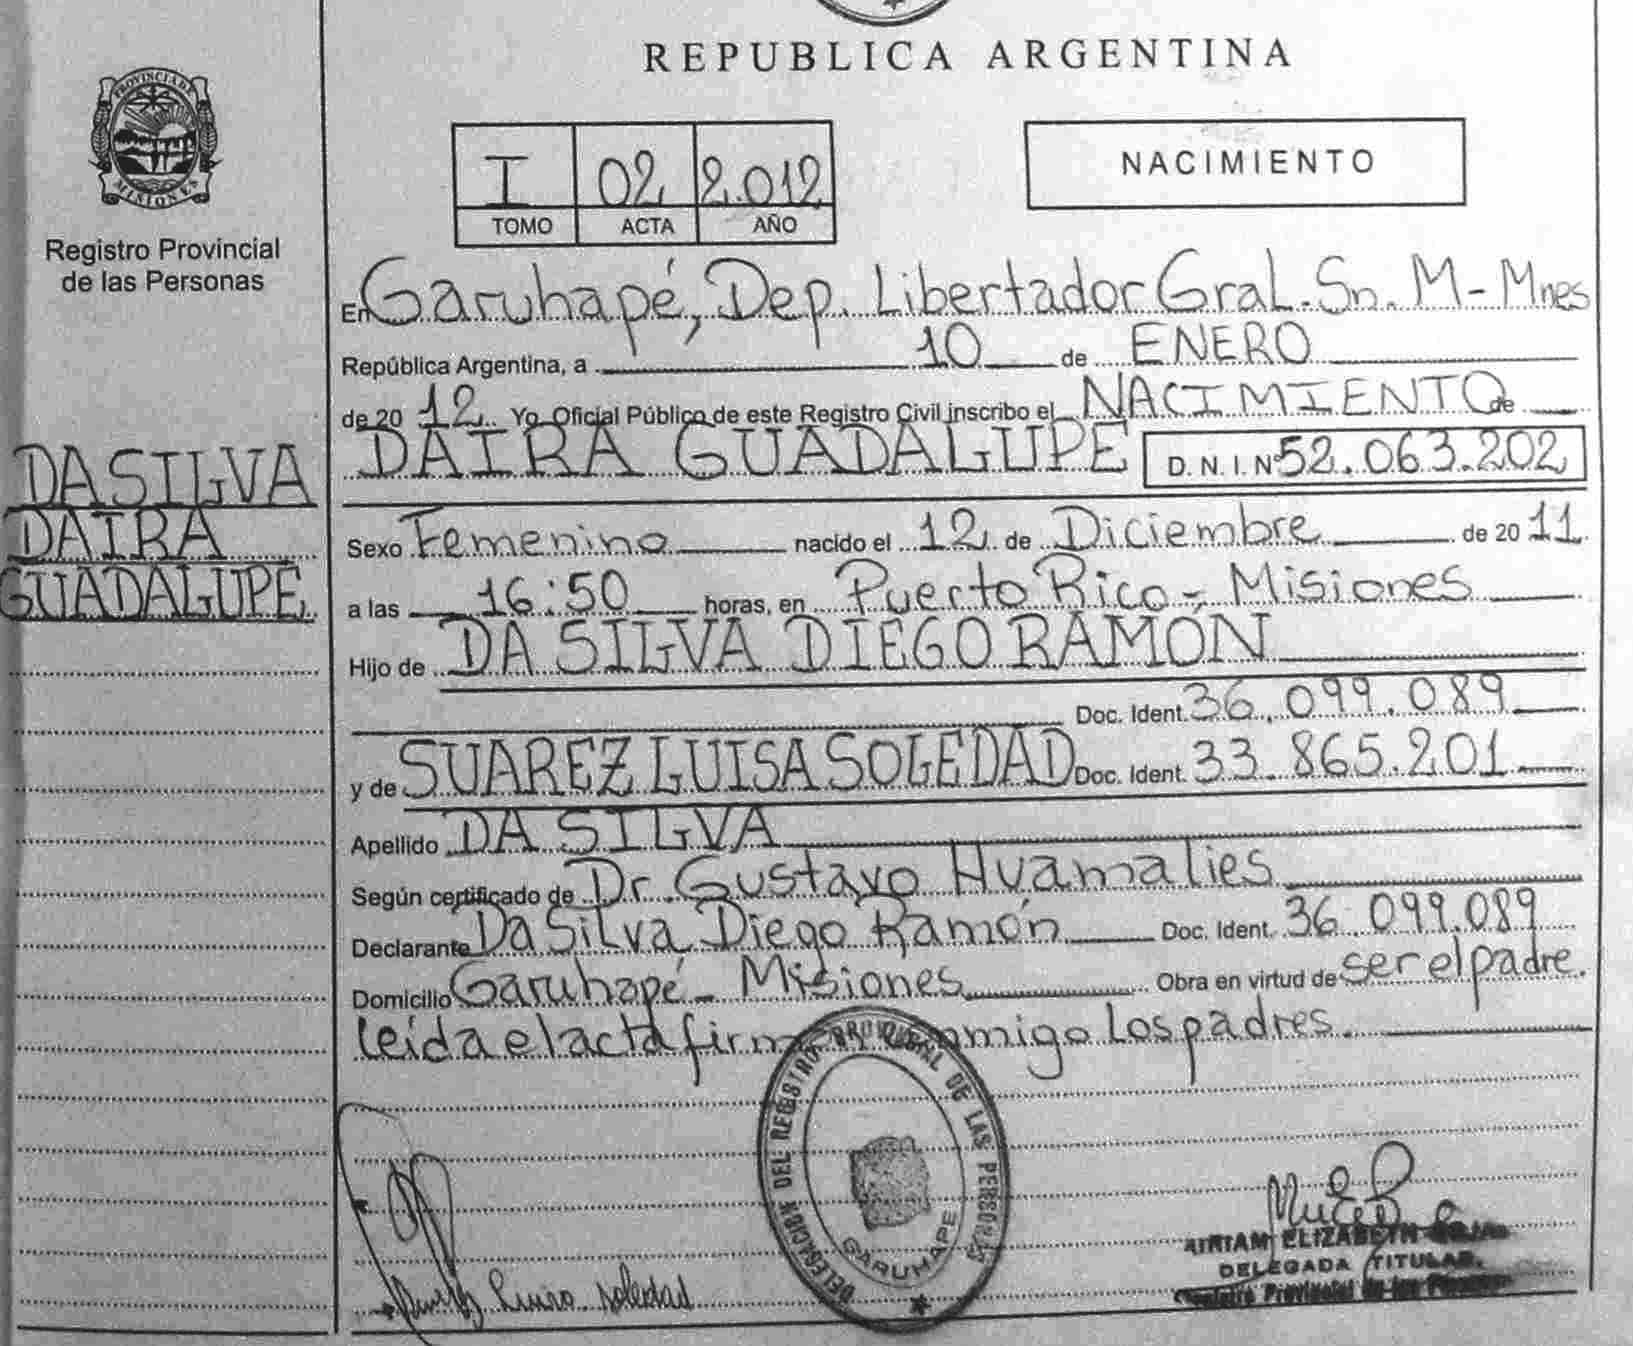 REPUBLICA ARGENTINA
PROVINCIA DE
MISIONES
Registro Provincial
de las Personas
I 02 2.012
TOMO ACTA AÑO
NACIMIENTO
En Garuhapé, Dep. Libertador Gral. Sn. M - Mnes
República Argentina, a 10 de ENERO
de 20 12 Yo, Oficial Público de este Registro Civil inscribo el NACIMIENTO de
DAIRA GUADALUPE D.N.I. Nº 52.063.202
DA SILVA
DAIRA
GUADALUPE
Sexo Femenino nacido el 12 de Diciembre de 20 11
a las 16:50 horas, en Puerto Rico - Misiones
Hijo de DA SILVA DIEGO RAMÓN
Doc. Ident. 36.099.089
y de SUAREZ LUISA SOLEDAD Doc. Ident. 33.865.201
Apellido DA SILVA
Según certificado de Dr. Gustavo Huamalies
Declarante Da Silva Diego Ramón Doc. Ident. 36.099.089
Domicilio Garuhapé - Misiones Obra en virtud de ser el padre.
leída el acta conmigo los padres.
DELEGACION DEL REGISTRO PROVINCIAL DE LAS PERSONAS
GARUHAPE
Luisa Soledad
ELIZABETH
DELEGADA TITULAR
Registro Provincial de las Personas